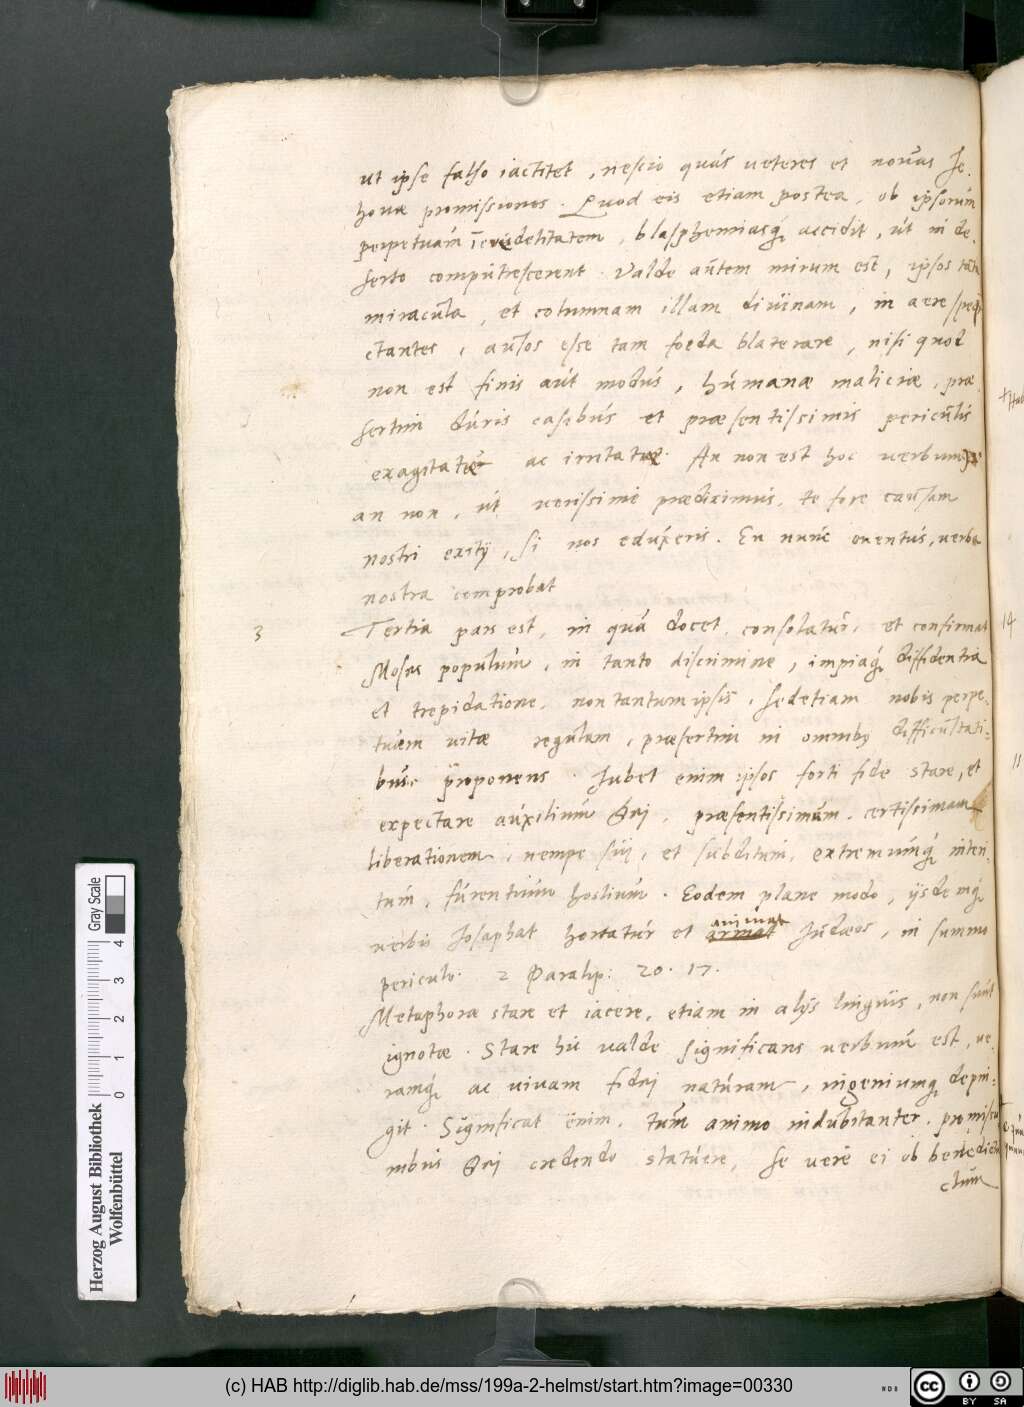 ut ipse falso iactitet, nescio quas veteres et novas Je-
hovae promissiones. Quod eis etiam postea, ob ipsorum
perpetuam incredelitatem, blasphemiasq; accidit, ut in de-
serto computrescerent. Valde autem mirum est, ipsos tanta
miracula, et columnam illam divinam, in aere spe
ctantes, ausos esse tam foeda blaterare, nisi quod
non est finis aut modus, humanae maliciae, prae
sertim duris casibus et praesentissimis periculis
exagitatae ac irritatae. An non est hoc verbum
an non, ut verissime praediximus, te fore causam
nostri exitij, si nos eduxeris. En nunc eventus, verba
nostra comprobat
3 Tertia pars est, in qua docet, consolatur, et confirmat
Moses populum, in tanto discrimine, impiaq; diffidentia
et trepidatione, non tantum ipsis, sed etiam nobis perpe-
tuam vitae regulam, praesertim in omnibus difficultati-
bus proponens. Jubet enim ipsos forti fide stare, et
expectare auxilium Dei, praesentissimum, certissimam
liberationem, nempe sui, et subditum, extremumq; interi-
tum, furentium hostium. Eodem plane modo, ijsdemq;
verbis Josaphat hortatur et armat animat Judaeos, in summo
periculo. 2 Paralip: 20. 17.
Metaphorae stare et iacere, etiam in alijs linguis, non sunt
ignotae. Stare hic valde significans verbum est, ve-
ramq; ac vivam fidei naturam, ingeniumq; depin-
git. Significat enim, tum animo indubitanter, promissio
nibus Dei credendo statuere, se vere ei ob benedictum
ctum
14
11
Herzog August Bibliothek
Wolfenbüttel
0 1 2 3 4
Gray Scale
(c) HAB http://diglib.hab.de/mss/199a-2-helmst/start.htm?image=00330
cc BY SA